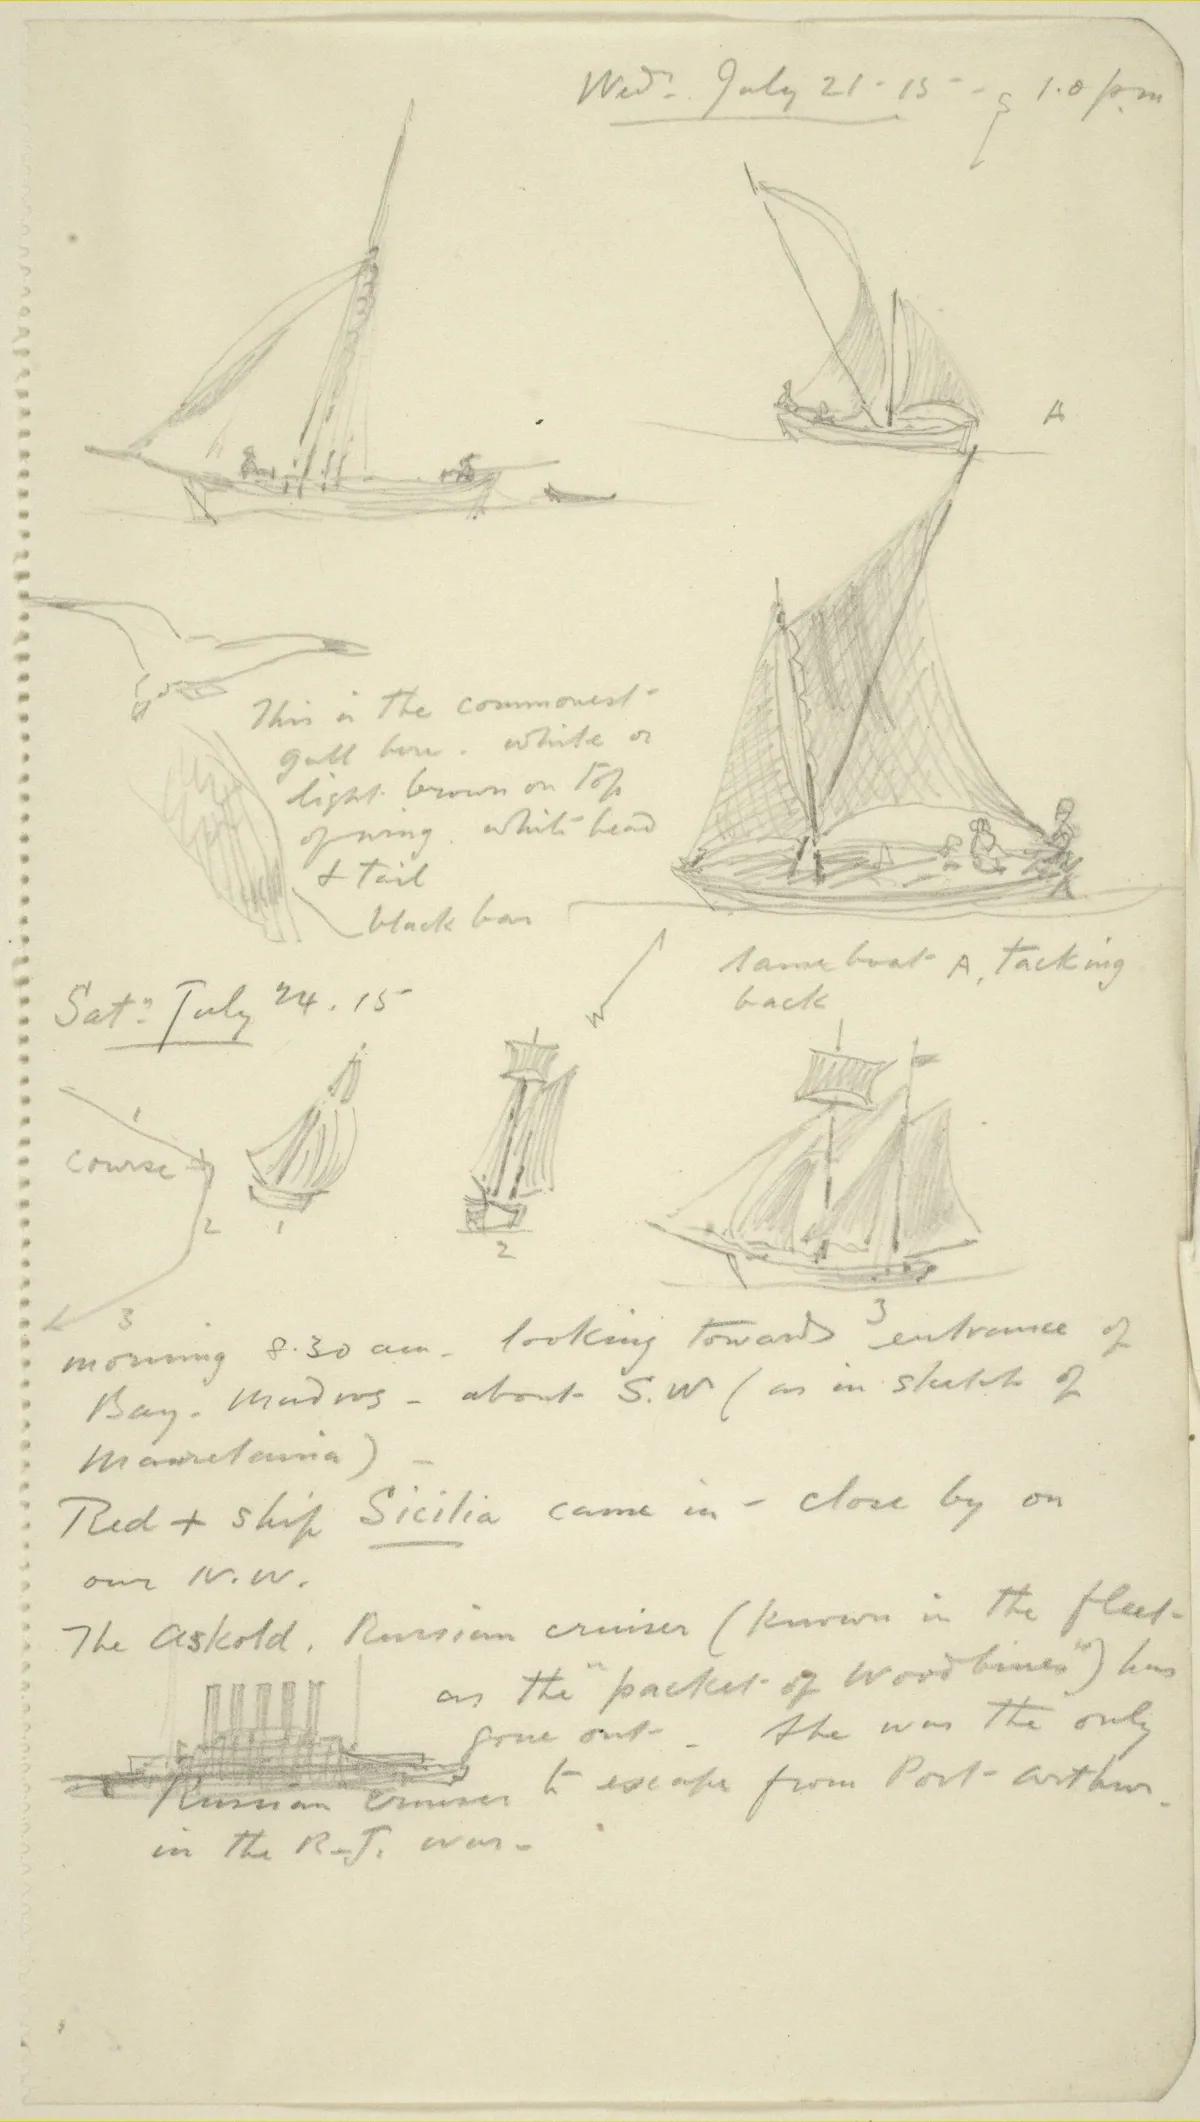 Wed? July 21-15- 1.0 pm
S
A
This is the commonest
gull here. white or
light brown on top
of wing. white head
& tail
black bar
same boat A, tacking
back
W
Sat? July 24.15
1
course
2
3
1
2
3
morning 8.30 am. looking towards entrance of
Bay. Mudros - about S.W (as in sketch of
Mauretania) -
Red + ship Sicilia came in - close by on
our N.W.
The Askold. Russian cruiser (known in the fleet
as the "packet of Woodbines") has
gone out - She was the only
Russian cruiser to escape from Port Arthur.
in the R-J. war.